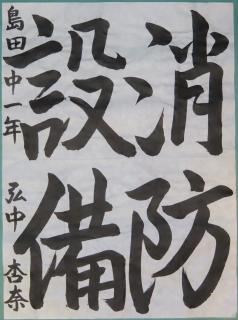 消防
設備
島田中一年
弘中 杏奈